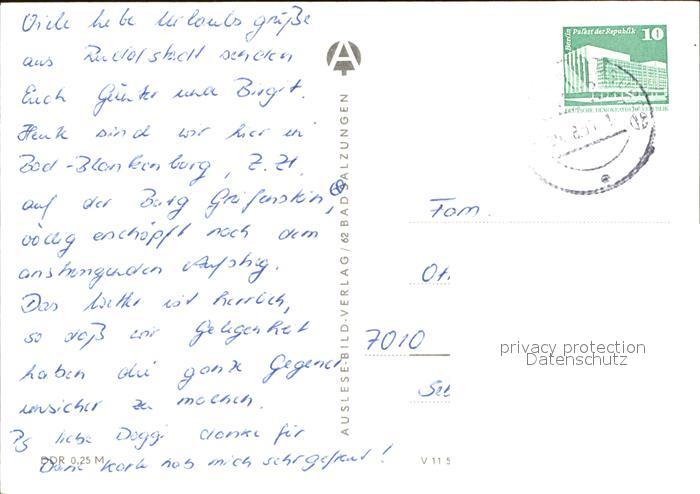 Viele liebe Urlaubsgrüße
aus Rudolstadt senden
Euch Günter und Birgit.
Heute sind wir hier in
Bad-Blankenburg, z. Zt.
auf der Burg Greifenstein,
völlig erschöpft nach dem
anstrengenden Aufstieg.
Das Wetter ist herrlich,
so daß wir Gelegenheit
haben die ganze Gegend
unsicher zu machen.
PS liebe Doggi danke für
Deine Karte hab mich sehr gefreut!
DDR 0,25 M
AUSLESE-BILD-VERLAG / 62 BAD SALZUNGEN
Berlin Palast der Republik 10
DEUTSCHE DEMOKRATISCHE REPUBLIK
Fam.
7010
privacy protection
Datenschutz
V 11 5